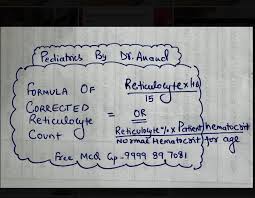 Pediatrics By Dr. Anand
FORMULA OF CORRECTED Reticulocyte Count
=
Reticulocyte x Hb
15
OR
Reticulocyte % x Patient hematocrit
Normal Hematocrit for age
Free MCQ Gp - 9999 89 7081